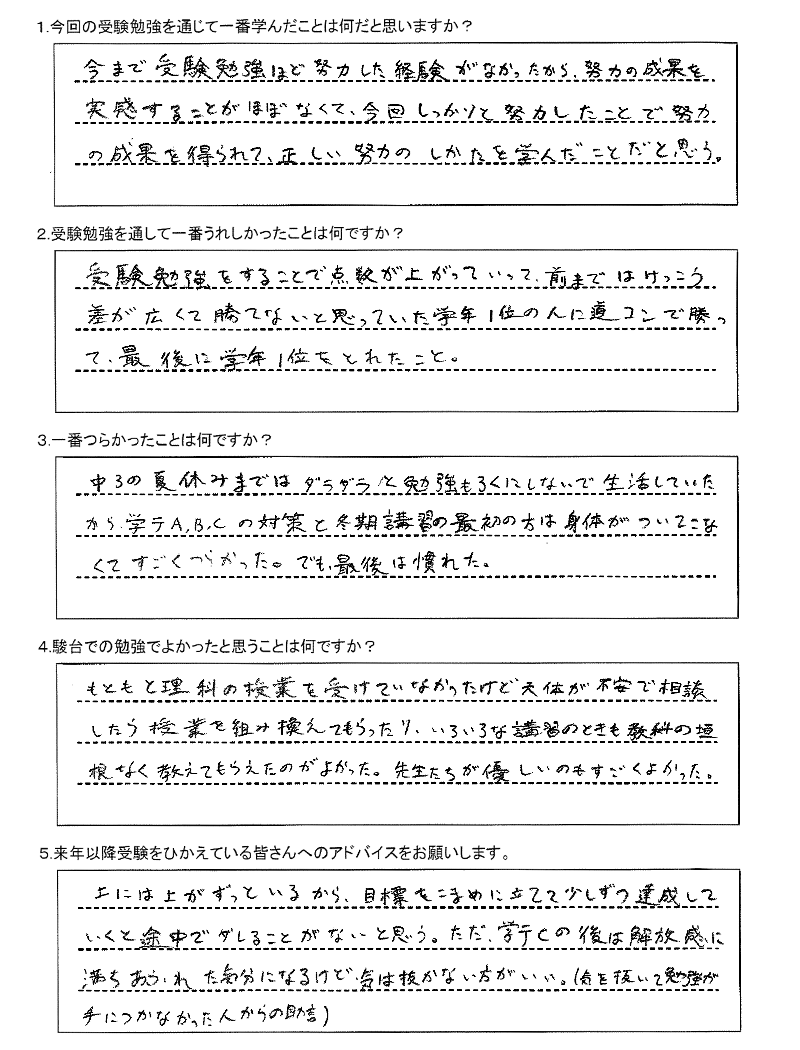 1.今回の受験勉強を通じて一番学んだことは何だと思いますか？
今まで受験勉強ほど努力した経験がなかったから、努力の成果を
実感することがほぼなくて、今回しっかりと努力したことで努力
の成果を得られて、正しい努力のしかたを学んだことだと思う。
2.受験勉強を通して一番うれしかったことは何ですか？
受験勉強をすることで点数が上がっていって、前まではけっこう
差が広くて勝てないと思っていた学年1位の人に道コンで勝っ
て、最後に学年1位をとれたこと。
3.一番つらかったことは何ですか？
中3の夏休みまではダラダラと勉強もろくにしないで生活していた
から、学テA,B,Cの対策と冬期講習の最初の方は身体がついてこな
くてすごくつらかった。でも、最後は慣れた。
4.駿台での勉強でよかったと思うことは何ですか？
もともと理科の授業を受けていなかったけど天体が不安で相談
したら授業を組み換えてもらったり、いろいろな講習のときも教科の垣
根なく教えてもらえたのがよかった。先生たちが優しいのもすごくよかった。
5.来年以降受験をひかえている皆さんへのアドバイスをお願いします。
上には上がずっといるから、目標をこまめに立てて少しずつ達成して
いくと途中でダレることがないと思う。ただ、学テCの後は解放感に
満ちあふれた気分になるけど、気は抜かない方がいい。(気を抜いて勉強が
手につかなかった人からの助言)